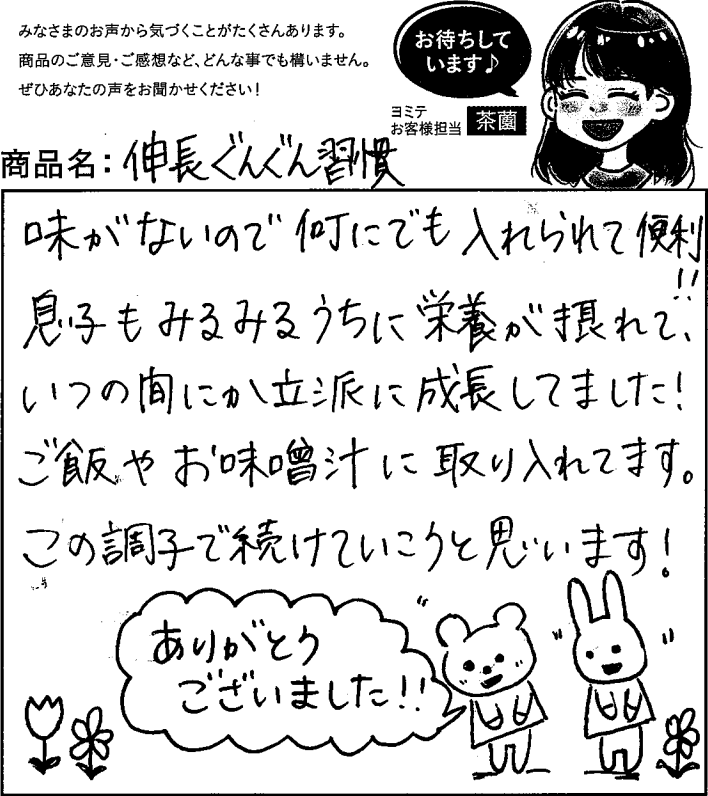 みなさまのお声から気づくことがたくさんあります。
商品のご意見・ご感想など、どんな事でも構いません。
ぜひあなたの声をお聞かせください！
お待ちして
います♪
ヨミテ
お客様担当 茶薗
商品名：伸長ぐんぐん習慣
味がないので何にでも入れられて便利!!
息子もみるみるうちに栄養が摂れて、
いつの間にか立派に成長してました！
ご飯やお味噌汁に取り入れてます。
この調子で続けていこうと思います！
ありがとう
ございました!!